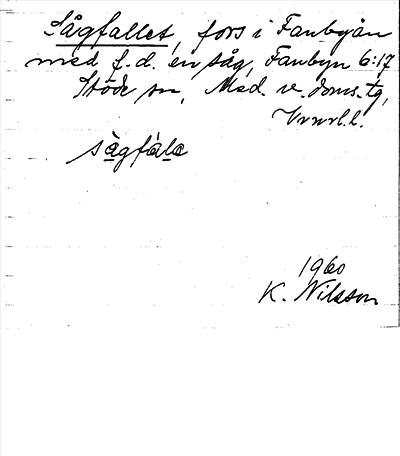 Sågfallet, fors i Fanbyån
med f.d. en såg, Fanbyn 6:17
Stöde sn, Med. v. doms. tg,
Vnrl. l.
sågfalc
1960
K. Nilsson